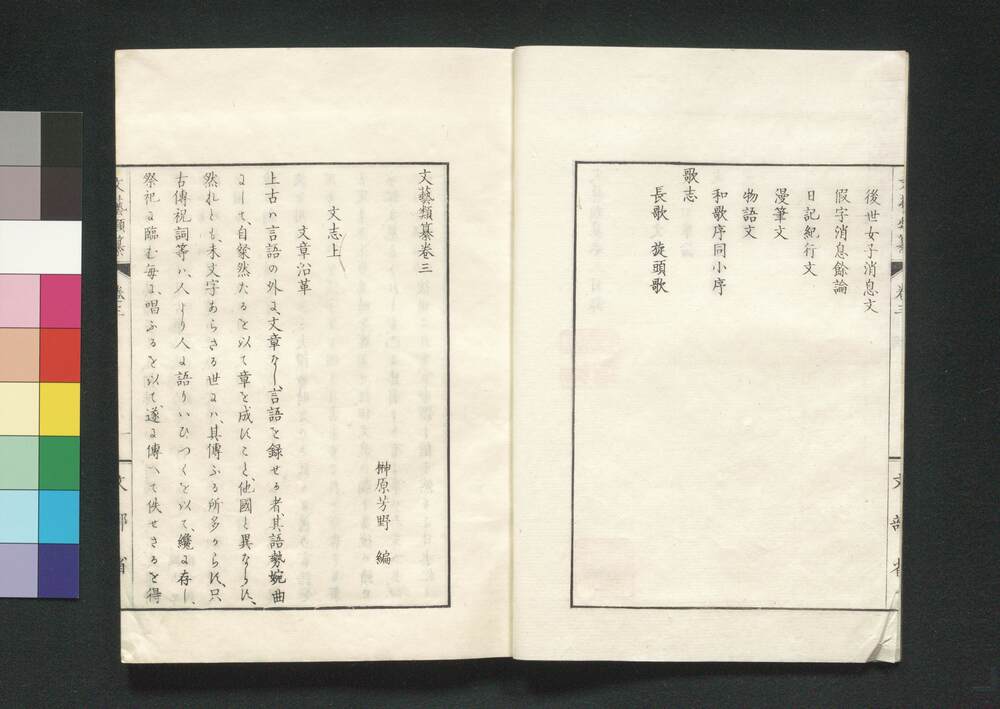 後世女子消息文
假字消息餘論
日記紀行文
漫筆文
物語文
和歌序同小序
歌志
長歌 旋頭歌
文藝類纂
卷三
文部省
文藝類纂卷三
榊原芳野 編
文志上
文章沿革
上古ハ言語の外に、文章なし、言語を録せる者、其語勢婉曲
にして、自粲然たるを以て章を成すこと、他國と異ならす、
然れとも、未文字あらさる世にハ、其傳ふる所多からす、只
古傳祝詞等ハ、人より人に語りいひつくを以て、纔に存し、
祭祀に臨む毎に、唱ふるを以て遂に傳へて佚せさるを得
文藝類纂
卷三
一
文部省